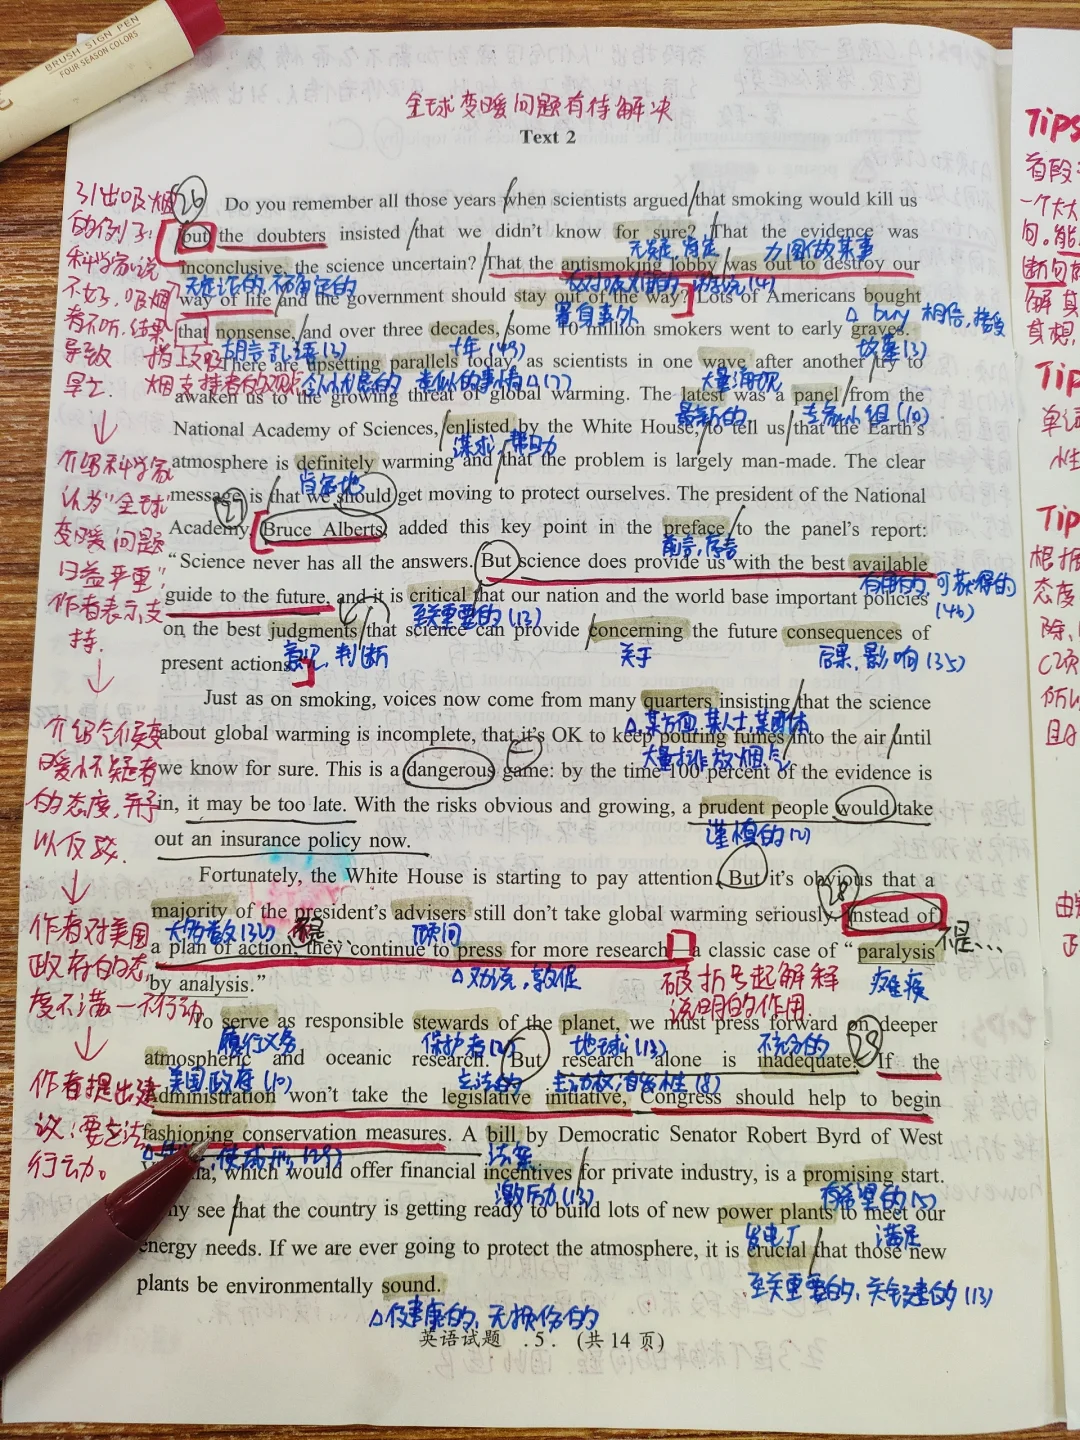 BRUSH SIGN PEN
FOUR SEASON COLORS
全球变暖问题有待解决
Text 2
引出吸烟
的例子:
科学家说
不好,吸烟
者不听,结果
导致
早亡.
26
Do you remember all those years when scientists argued that smoking would kill us
but the doubters insisted that we didn't know for sure? That the evidence was
无疑,肯定
力图做某事
inconclusive, the science uncertain? That the antismoking lobby was out to destroy our
无定论的,不确定的
way of life and the government should stay out of the way? Lots of Americans bought
置身事外
△ buy 相信,接受
that nonsense, and over three decades, some 10 million smokers went to early graves.
胡言乱语(3)
十年(43)
坟墓(3)
There are upsetting parallels today, as scientists in one wave after another try to
令人忧虑的
类似的事情△(7)
大量涌现
awaken us to the growing threat of global warming. The latest was a panel from the
最新的
专家小组(10)
National Academy of Sciences, enlisted by the White House, to tell us that the Earth's
谋求,帮助
atmosphere is definitely warming and that the problem is largely man-made. The clear
肯定地
message is that we should get moving to protect ourselves. The president of the National
27
Academy, Bruce Alberts, added this key point in the preface to the panel's report:
前言,序言
"Science never has all the answers. But science does provide us with the best available
有用的,可获得的
(46)
guide to the future, and it is critical that our nation and the world base important policies
至关重要的(13)
on the best judgments that science can provide concerning the future consequences of
意见,判断
关于
后果,影响(35)
present actions."
介绍科学家
认为"全球
变暖问题
日益严重",
作者表示支
持.
Just as on smoking, voices now come from many quarters insisting that the science
△某方面,某人士,某团体
about global warming is incomplete, that it's OK to keep pouring fumes into the air until
大量排放烟气
we know for sure. This is a dangerous game: by the time 100 percent of the evidence is
in, it may be too late. With the risks obvious and growing, a prudent people would take
谨慎的(2)
out an insurance policy now.
介绍气候变
暖怀疑者
的态度,并予
以反驳.
Fortunately, the White House is starting to pay attention. But it's obvious that a
28
majority of the president's advisers still don't take global warming seriously. Instead of
大多数(32)
顾问
不是...
a plan of action, they continue to press for more research — a classic case of "paralysis
△劝说,敦促
瘫痪
by analysis."
破折号起解释
说明的作用
作者对美国
政府的态
度不满—不行动
To serve as responsible stewards of the planet, we must press forward on deeper
履行义务
保护者(2)
地球(13)
不充分的
atmospheric and oceanic research. But research alone is inadequate. If the
29
美国政府(10)
立法的
主动权,首创性(8)
administration won't take the legislative initiative, Congress should help to begin
fashioning conservation measures. A bill by Democratic Senator Robert Byrd of West
法案
which would offer financial incentives for private industry, is a promising start.
激励(13)
有希望的(5)
see that the country is getting ready to build lots of new power plants to meet our
发电厂
满足
energy needs. If we are ever going to protect the atmosphere, it is crucial that those new
至关重要的,关键的(13)
plants be environmentally sound.
△健康的,无损伤的
作者提出建
议:要立法
行动。
英语试题 . 5 . (共 14 页)
Tips
首段
一个大大
断句
Tip
单词
性
Tip
根据
态度